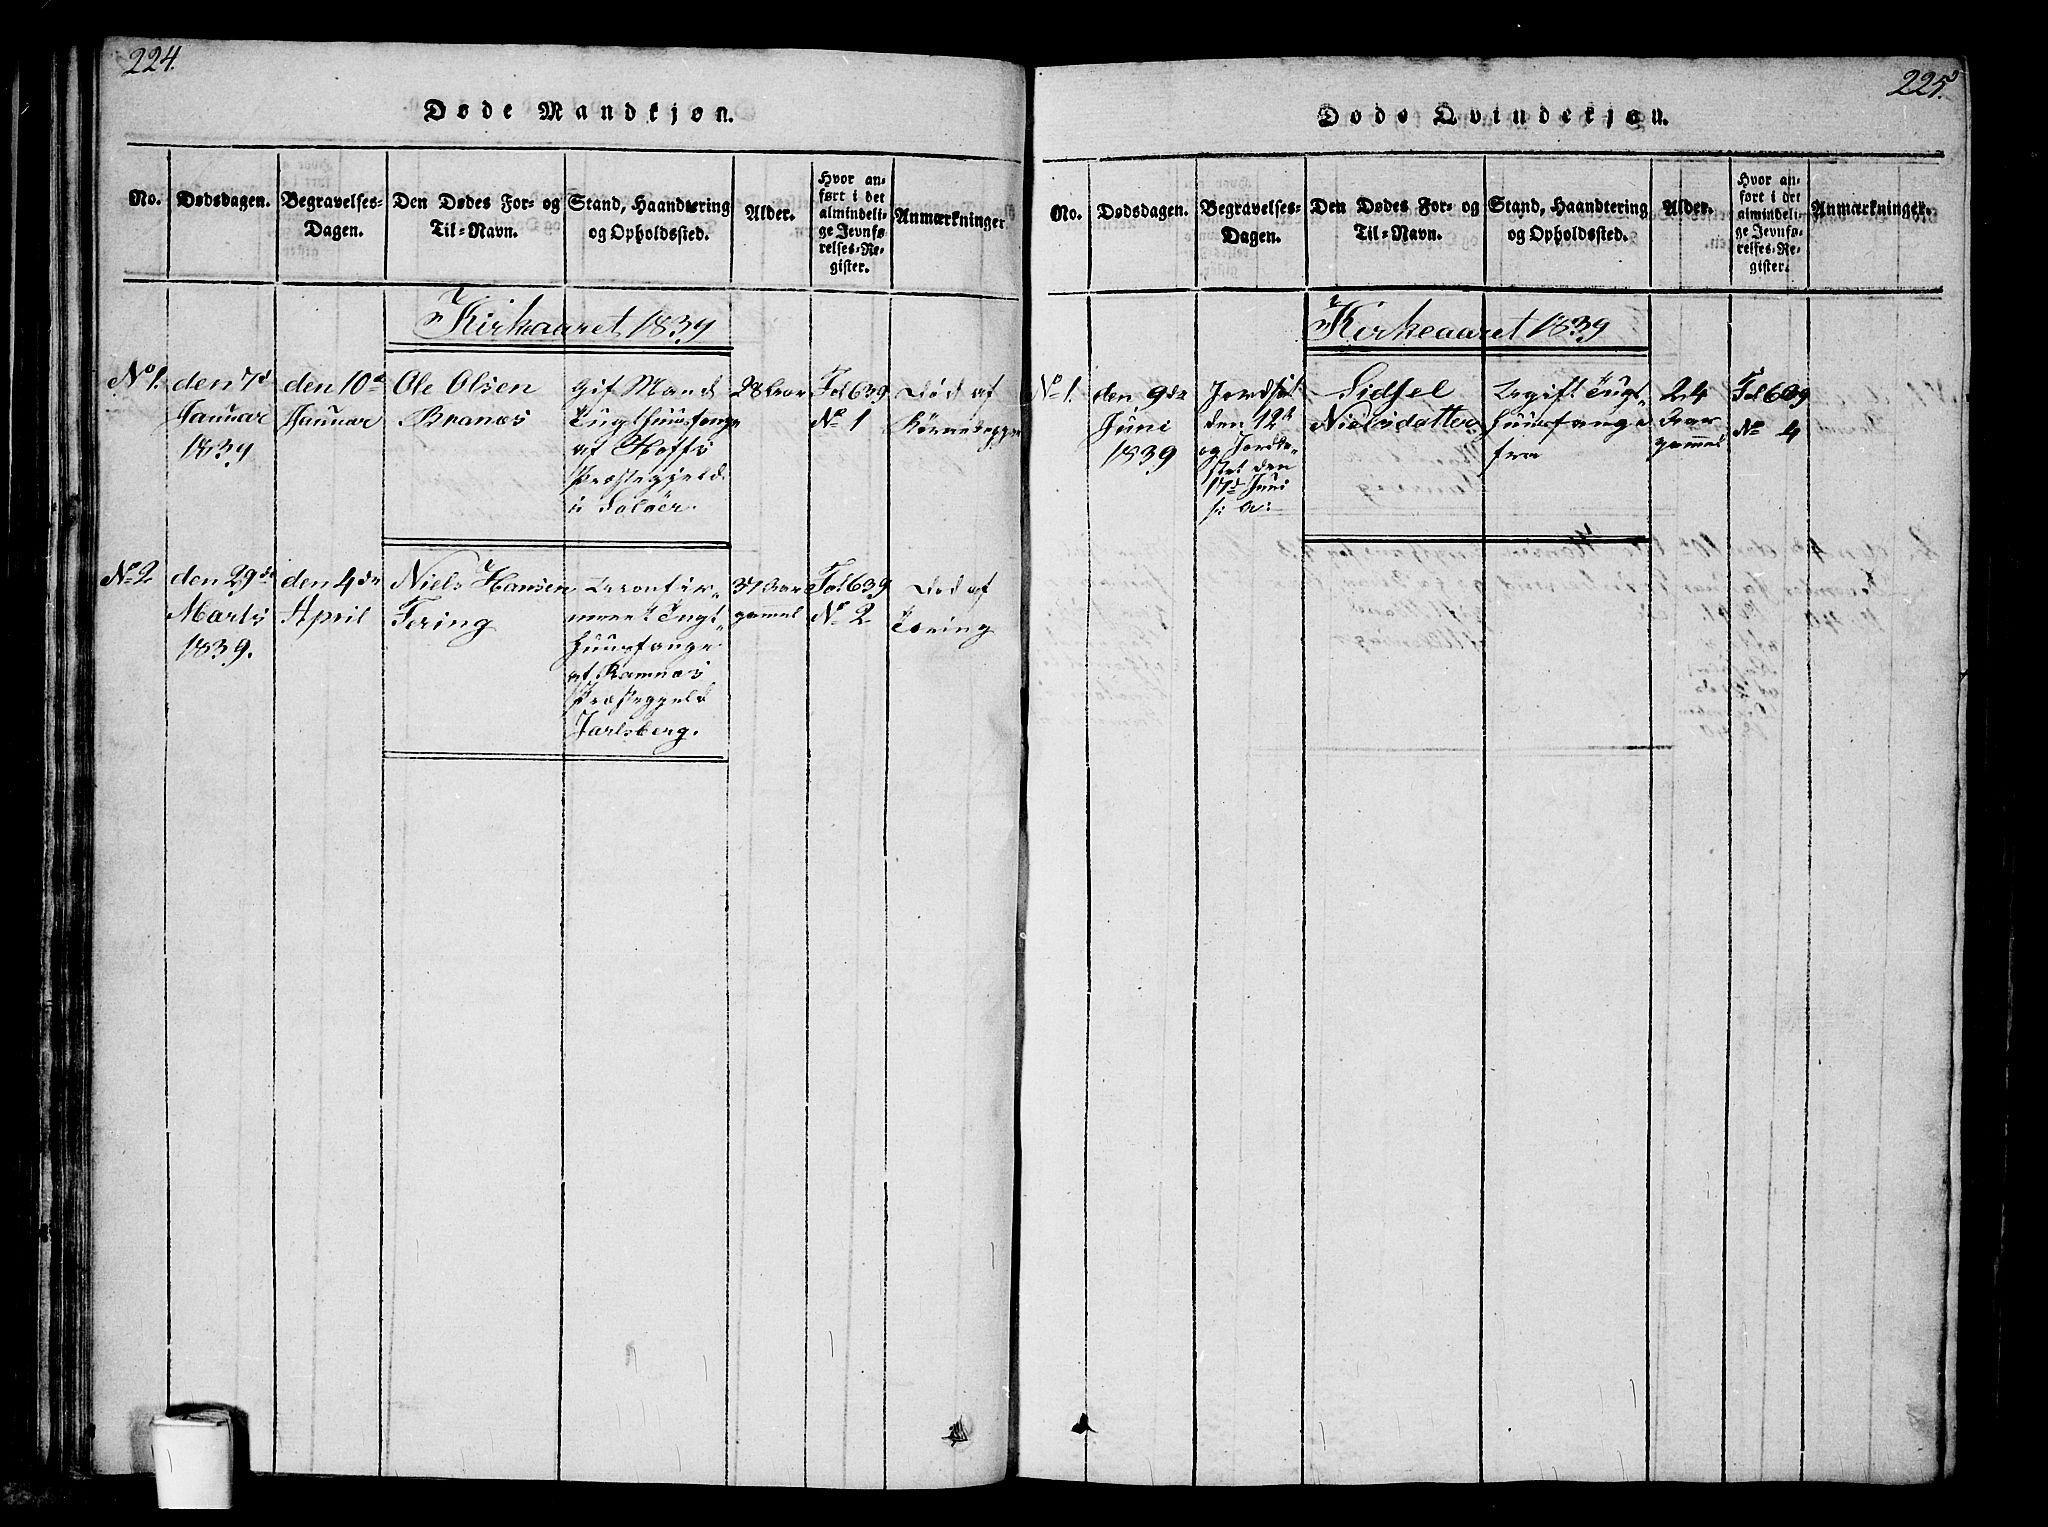 224.
Døde Mandkjøn.
No.
Dødsdagen.
Begravelses-
Dagen.
Den Dødes For- og
Til-Navn.
Stand, Haandtering
og Opholdssted.
Alder.
Hvor an-
ført i det
almindeli-
ge Jevnfø-
relses-Re-
gister.
Anmærkninger.
Kirkeaaret 1839
No 1.
den 7d
Januar
1839
den 10de
Januar
Ole Olsen
Branæs
Gift Mand
Tugthuusfange
af Hoffs
Præstegjeld
i Soløer.
28 Aar
Fol 639
No 1
Død af
No 2
den 29de
Marts
1839.
den 4de
April
Niels Hansen
Tering
Tugt-
huusfange
af Ramnæs
Præstegjeld
Jarlsberg.
37 Aar
gamel
Fol 639
No 2
Død af
Tæring
225.
Døde Qvindekjøn.
No.
Dødsdagen.
Begravelses-
Dagen.
Den Dødes For- og
Til-Navn.
Stand, Haandtering
og Opholdssted.
Alder.
Hvor an-
ført i det
almindeli-
ge Jevnfø-
relses-Re-
gister.
Anmærkninger.
Kirkeaaret 1839
No 1.
den 9de
Juni
1839
den 12te
og Jordka-
stet den
17d Juni
s: A:
Sidsel
Nielsdatter
Ugift Tugt-
huusfange
fra
24
Aar
gammel
Fol 639
No 4